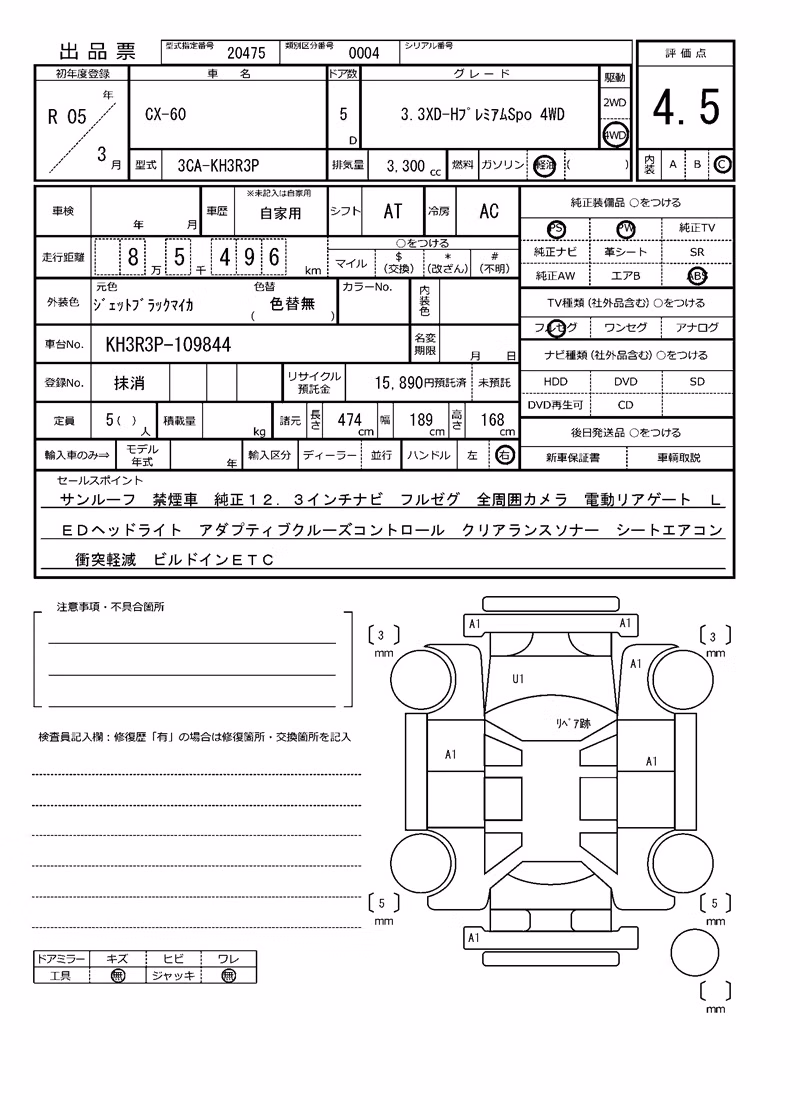 出品票
型式指定番号 20475 類別区分番号 0004 シリアル番号
評価点
4.5
内装 A B C
初年度登録 車名 ドア数 グレード 駆動
R 05 年 3 月
CX-60 5 D 3.3XD-HプレミアムSpo 4WD 2WD 4WD
型式 3CA-KH3R3P 排気量 3,300 cc 燃料 ガソリン 軽油 ( )
車検 年 月 車歴 ※未記入は自家用 自家用 シフト AT 冷房 AC
走行距離 8 万 5 千 4 9 6 km ○をつける マイル $(交換) *(改ざん) #(不明)
外装色 元色 ジェットブラックマイカ 色替 色替無 ( ) カラーNo. 内装色
車台No. KH3R3P-109844 名変期限 月 日
登録No. 抹消 リサイクル預託金 15,890円預託済 未預託
定員 5( ) 人 積載量 kg 諸元 長さ 474 cm 幅 189 cm 高さ 168 cm
輸入車のみ⇒ モデル年式 年 輸入区分 ディーラー 並行 ハンドル 左 右
純正装備品 ○をつける
PS PW 純正TV
純正ナビ 革シート SR
純正AW エアB ABS
TV種類(社外品含む)○をつける
フルセグ ワンセグ アナログ
ナビ種類(社外品含む)○をつける
HDD DVD SD
DVD再生可 CD
後日発送品 ○をつける
新車保証書 車輌取説
セールスポイント
サンルーフ 禁煙車 純正12.3インチナビ フルゼグ 全周囲カメラ 電動リアゲート L
EDヘッドライト アダプティブクルーズコントロール クリアランスソナー シートエアコン
衝突軽減 ビルドインETC
注意事項・不具合箇所
検査員記入欄:修復歴「有」の場合は修復箇所・交換箇所を記入
ドアミラー キズ ヒビ ワレ
工具 無 ジャッキ 無
A1 A1
3 mm
3 mm
A1
U1
リペア跡
A1 A1
5 mm
5 mm
A1
mm